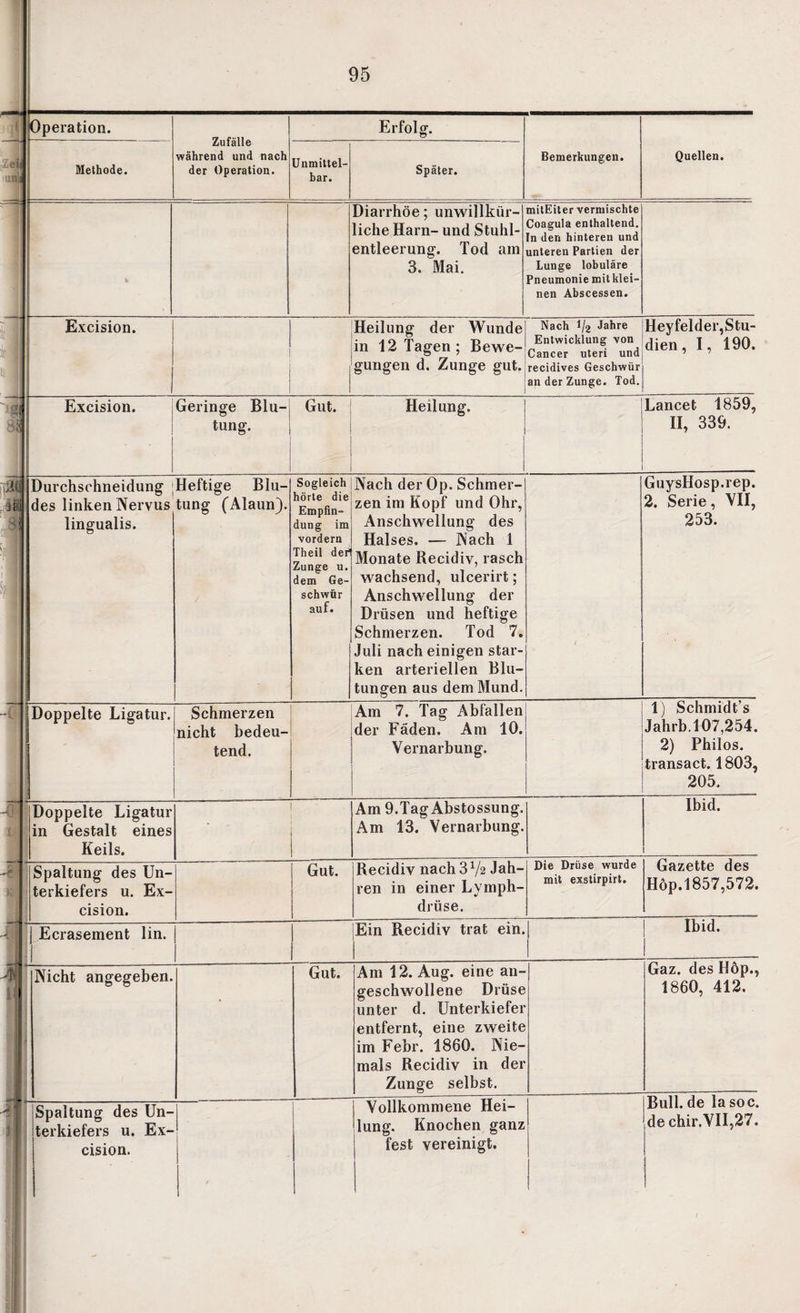 95
Operation.
Zufälle
während und nach
der Operation.
Erfolg.
Bemerkungen.
Quellen.
Methode.
Unmittel-
bar.
Später.
Diarrhöe; unwillkür-
liche Harn- und Stuhl-
entleerung. Tod am
3. Mai.
mit Eiter vermischte
Coagula enthaltend.
In den hinteren und
unteren Partien der
Lunge lobuläre
Pneumonie mit klei-
nen Abscessen.
Excision.
Heilung der Wunde
in 12 Tagen; Bewe-
gungen d. Zunge gut.
Nach 1/2 Jahre
Entwicklung von
Cancer uteri und
recidives Geschwür
an der Zunge. Tod.
Heyfelder, Stu-
dien, I, 190.
Excision.
Geringe Blu-
tung.
Gut.
Heilung.
Lancet 1859,
II, 339.
Durchschneidung
des linken Nervus
lingualis.
Heftige Blu-
tung (Alaun).
Sogleich
hörte die
Empfin-
dung im
vordern
Theil der
Zunge u.
dem Ge-
schwür
auf.
Nach der Op. Schmer-
zen im Kopf und Ohr,
Anschwellung des
Halses. — Nach 1
Monate Recidiv, rasch
wachsend, ulcerirt;
Anschwellung der
Drüsen und heftige
Schmerzen. Tod 7.
Juli nach einigen star-
ken arteriellen Blu-
tungen aus dem Mund.
Guys Hosp. rep.
2. Serie, VII,
253.
Doppelte Ligatur.
Schmerzen
nicht bedeu-
tend.
Am 7. Tag Abfallen
der Fäden. Am 10.
Vernarbung.
1) Schmidt's
Jahrb. 107,254.
2) Philos.
transact. 1803,
205.
Doppelte Ligatur
in Gestalt eines
Keils.
Am 9. Tag Abstossung.
Am 13. Vernarbung.
Ibid.
Spaltung des Un-
terkiefers u. Ex-
cision.
Gut.
Recidiv nach 3 1/2 Jah-
ren in einer Lymph-
drüse.
Die Drüse wurde
mit exstirpirt.
Gazette des
Hôp. 1857,572.
Ecrasement lin.
Ein Recidiv trat ein.
Ibid.
Nicht angegeben.
Gut.
Am 12. Aug. eine an-
geschwollene Drüse
unter d. Unterkiefer
entfernt, eine zweite
im Febr. 1860. Nie-
mals Recidiv in der
Zunge selbst.
Gaz. des Hôp.,
1860, 412.
Spaltung des Un-
terkiefers u. Ex-
cision.
Vollkommene Hei-
lung. Knochen ganz
fest vereinigt.
Bull. de la soc.
de chir. VII,27.